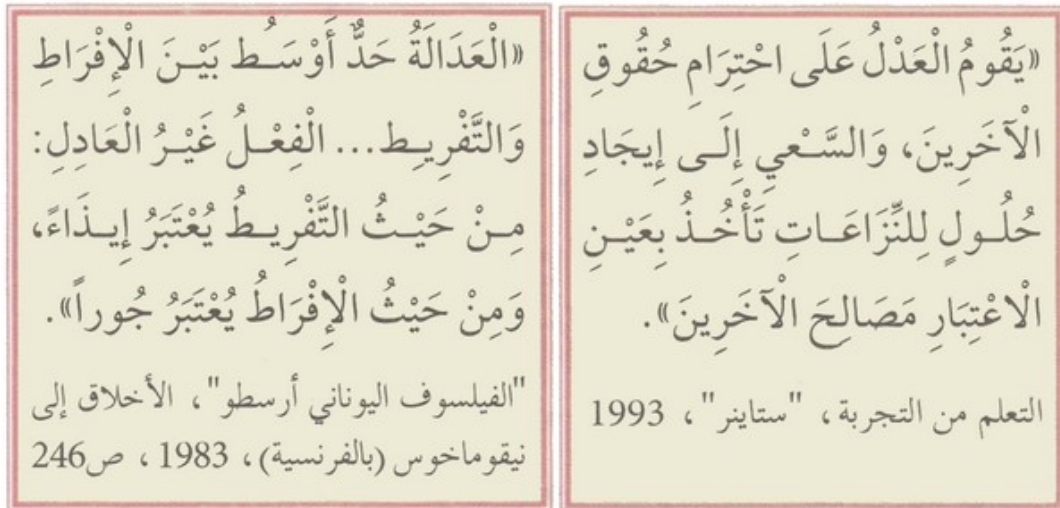 «يَقُومُ الْعَدْلُ عَلَى احْتِرَامِ حُقُوقِ
الْآخَرِينَ، وَالسَّعْيِ إِلَى إِيجَادِ
حُلُولٍ لِلنِّزَاعَاتِ تَأْخُذُ بِعَيْنِ
الْاعْتِبَارِ مَصَالِحَ الْآخَرِينَ».
التعلم من التجربة، "ستاينر"، 1993
«الْعَدَالَةُ حَدٌّ أَوْسَطُ بَيْنَ الْإِفْرَاطِ
وَالتَّفْرِيطِ... الْفِعْلُ غَيْرُ الْعَادِلِ:
مِنْ حَيْثُ التَّفْرِيطُ يُعْتَبَرُ إِيذَاءً،
وَمِنْ حَيْثُ الْإِفْرَاطُ يُعْتَبَرُ جُوراً».
"الفيلسوف اليوناني أرسطو"، الأخلاق إلى
نيقوماخوس (بالفرنسية)، 1983، ص246